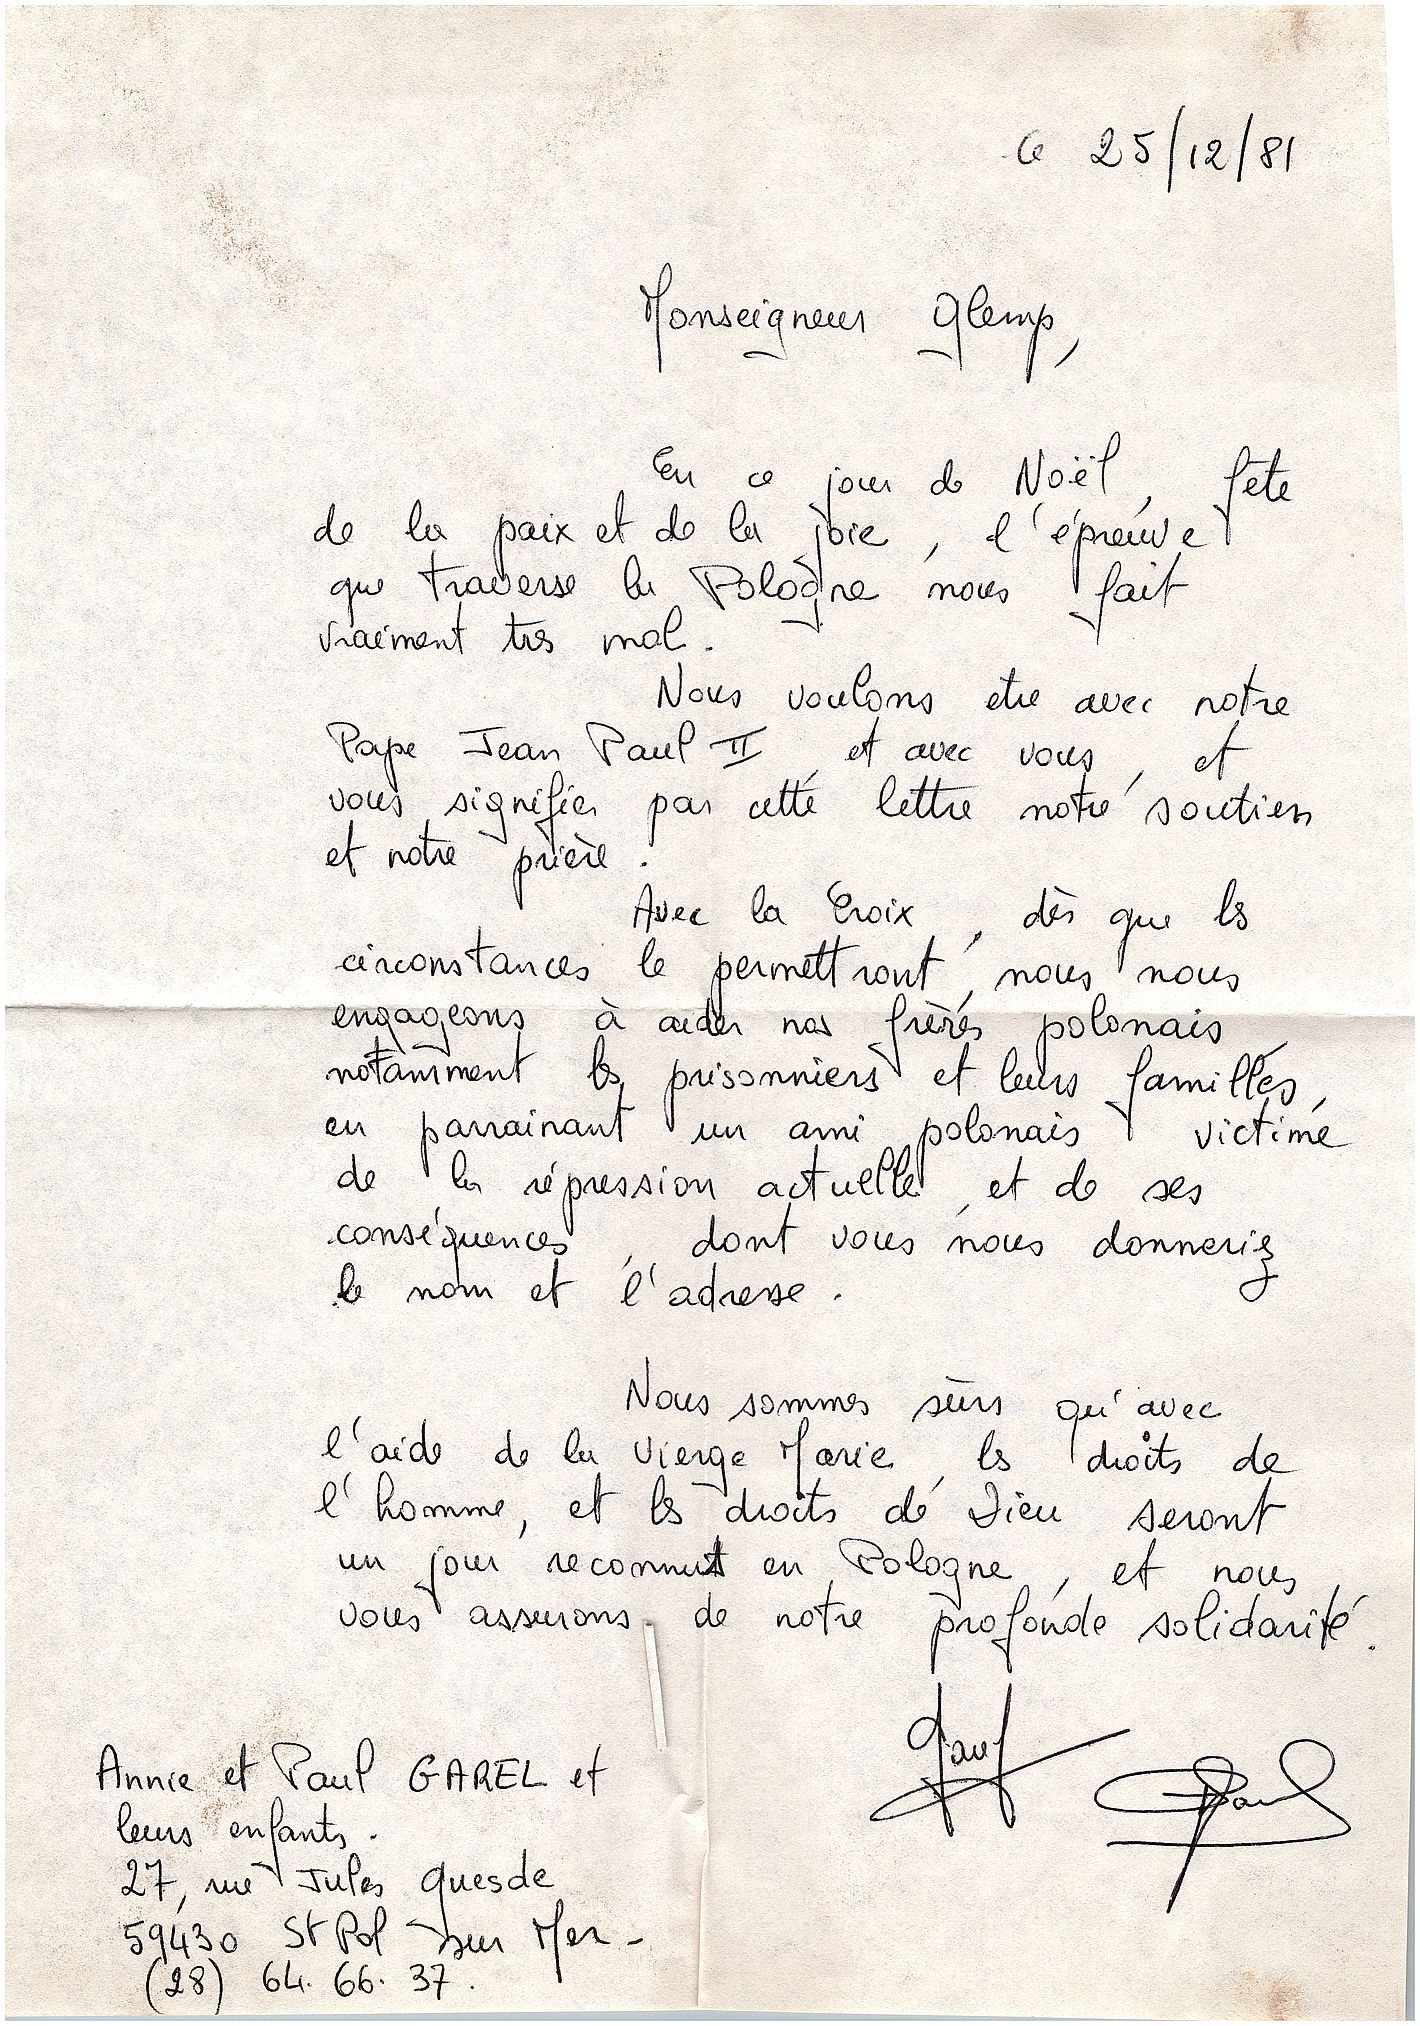 Le 25/12/81
Monseigneur Glemp,
En ce jour de Noël, fête
de la paix et de la joie, l'épreuve
que traverse la Pologne nous fait
vraiment très mal.
Nous voulons etre avec notre
Pape Jean Paul II, et avec vous, et
vous signifier par cette lettre notre soutien
et notre prière.
Avec la Croix, dès que les
circonstances le permettront, nous nous
engageons à aider nos frères polonais,
notamment les prisonniers et leurs familles,
en parrainant un ami polonais victime
de la répression actuelle, et de ses
conséquences, dont vous nous donneriez
le nom et l'adresse.
Nous sommes sûrs qu'avec
l'aide de la Vierge Marie, les droits de
l'homme, et les droits de Dieu seront
un jour reconnus en Pologne, et nous
vous assurons de notre profonde solidarité.
Paul
Annie et Paul GAREL et
leurs enfants.
27, rue Jules Guesde
59430 St Pol sur Mer -
(28) 64. 66. 37.